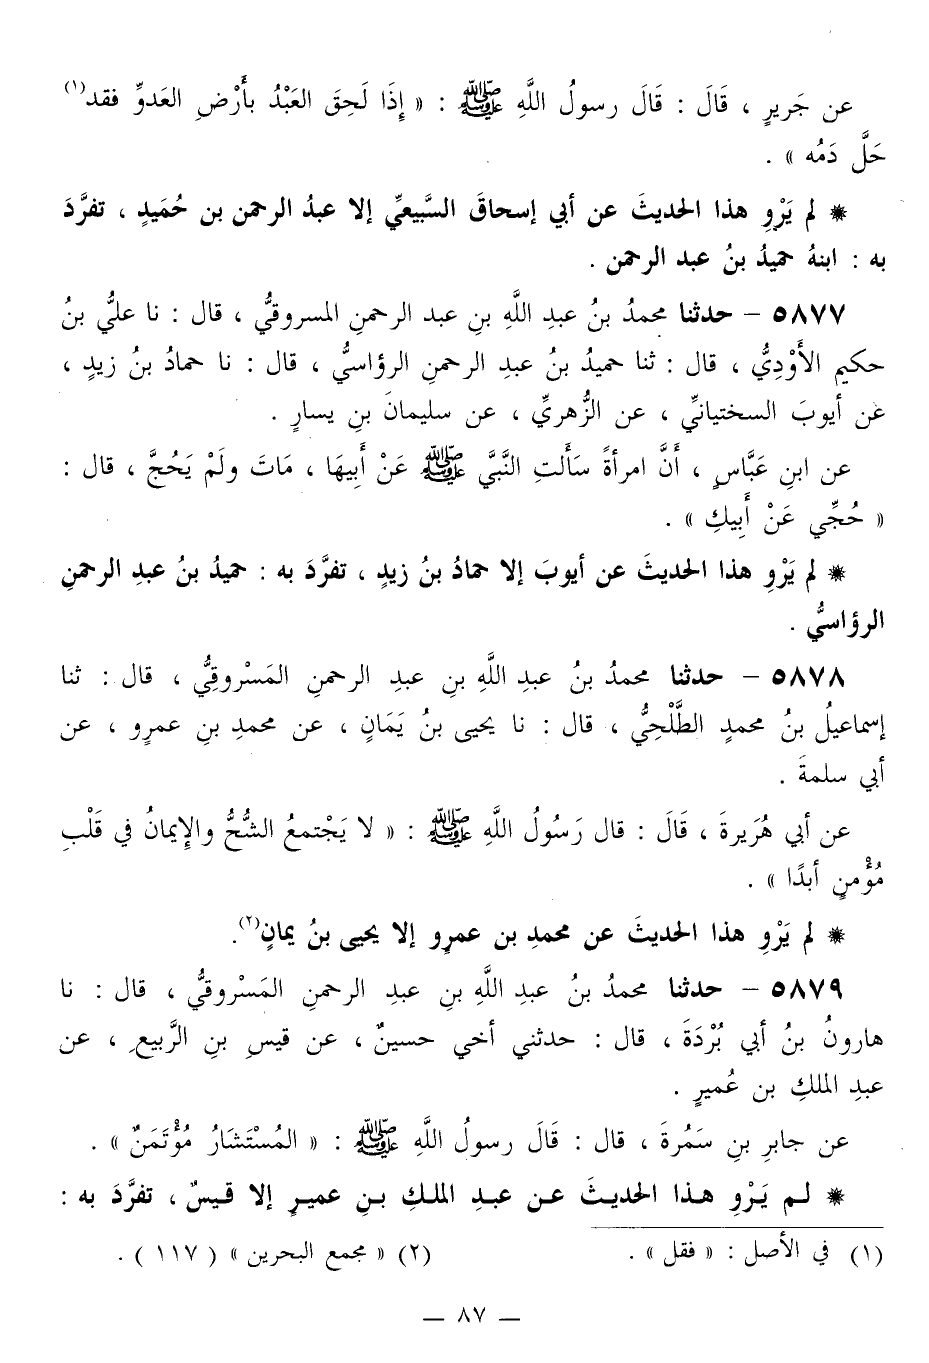 عن جَريرٍ ، قَالَ : قَالَ رسولُ اللَّهِ ﷺ : « إِذَا لَحِقَ العَبْدُ بأَرْضِ العَدوِّ فقد(١)
حَلَّ دَمُه » .
* لم يَرْوِ هذا الحديثَ عن أبي إسحاقَ السَّبيعيِّ إلا عبدُ الرحمن بن حُمَيدٍ ، تفرَّدَ
به : ابنهُ حميدُ بنُ عبد الرحمن .
٥٨٧٧ – حدثنا محمدُ بنُ عبدِ اللَّهِ بنِ عبد الرحمنِ المسروقيُّ ، قال : نا عليُّ بنُ
حكيمٍ الأَوْدِيُّ ، قال : ثنا حميدُ بنُ عبدِ الرحمنِ الرؤاسيُّ ، قال : نا حمادُ بنُ زيدٍ ،
عن أيوبَ السختيانيِّ ، عن الزُّهريِّ ، عن سليمانَ بنِ يسارٍ .
عن ابنِ عَبَّاسٍ ، أَنَّ امرأةً سَأَلتِ النَّبَّي ﷺ عَنْ أَبِيهَا ، مَاتَ ولَمْ يَحُجَّ ، قال :
« حُجِّي عَنْ أَبِيكِ » .
* لم يَرْوِ هذا الحديثَ عن أيوبَ إلا حمادُ بنُ زيدٍ ، تفرَّدَ به : حميدُ بنُ عبدِ الرحمنِ
الرؤاسيُّ .
٥٨٧٨ – حدثنا محمدُ بنُ عبدِ اللَّهِ بنِ عبدِ الرحمنِ المَسْروقِيُّ ، قال : ثنا
إسماعيلُ بنُ محمدٍ الطَّلْحِيُّ ، قال : نا يحيى بنُ يَمَانٍ ، عن محمدِ بنِ عمرٍو ، عن
أبي سلمةَ .
عن أبي هُرَيرةَ ، قَالَ : قال رَسُولُ اللَّهِ ﷺ : « لا يَجْتمعُ الشُّحُّ والإِيمانُ في قَلْبِ
مُؤْمنٍ أبدًا » .
* لم يَرْوِ هذا الحديثَ عن محمدِ بن عمرٍو إلا يحيى بنُ يمانٍ(٢).
٥٨٧٩ – حدثنا محمدُ بنُ عبدِ اللَّهِ بنِ عبدِ الرحمنِ المَسْروقيُّ ، قال : نا
هارونُ بنُ أبي بُرْدَةَ ، قال : حدثني أخي حسينٌ ، عن قيسِ بنِ الرَّبيعِ ، عن
عبدِ الملكِ بن عُميرٍ .
عن جابرِ بنِ سَمُرةَ ، قال : قَالَ رسولُ اللَّهِ ﷺ : « المُسْتَشارُ مُؤْتَمَنٌ » .
* لـم يَـرْوِ هـذا الحديـثَ عـن عبـدِ الملـكِ بـنِ عميـرٍ إلا قيـسٌ ، تفرَّدَ به :
(١) في الأصل : « فقل » . (٢) « مجمع البحرين » ( ١١٧ ) .
— ٨٧ —